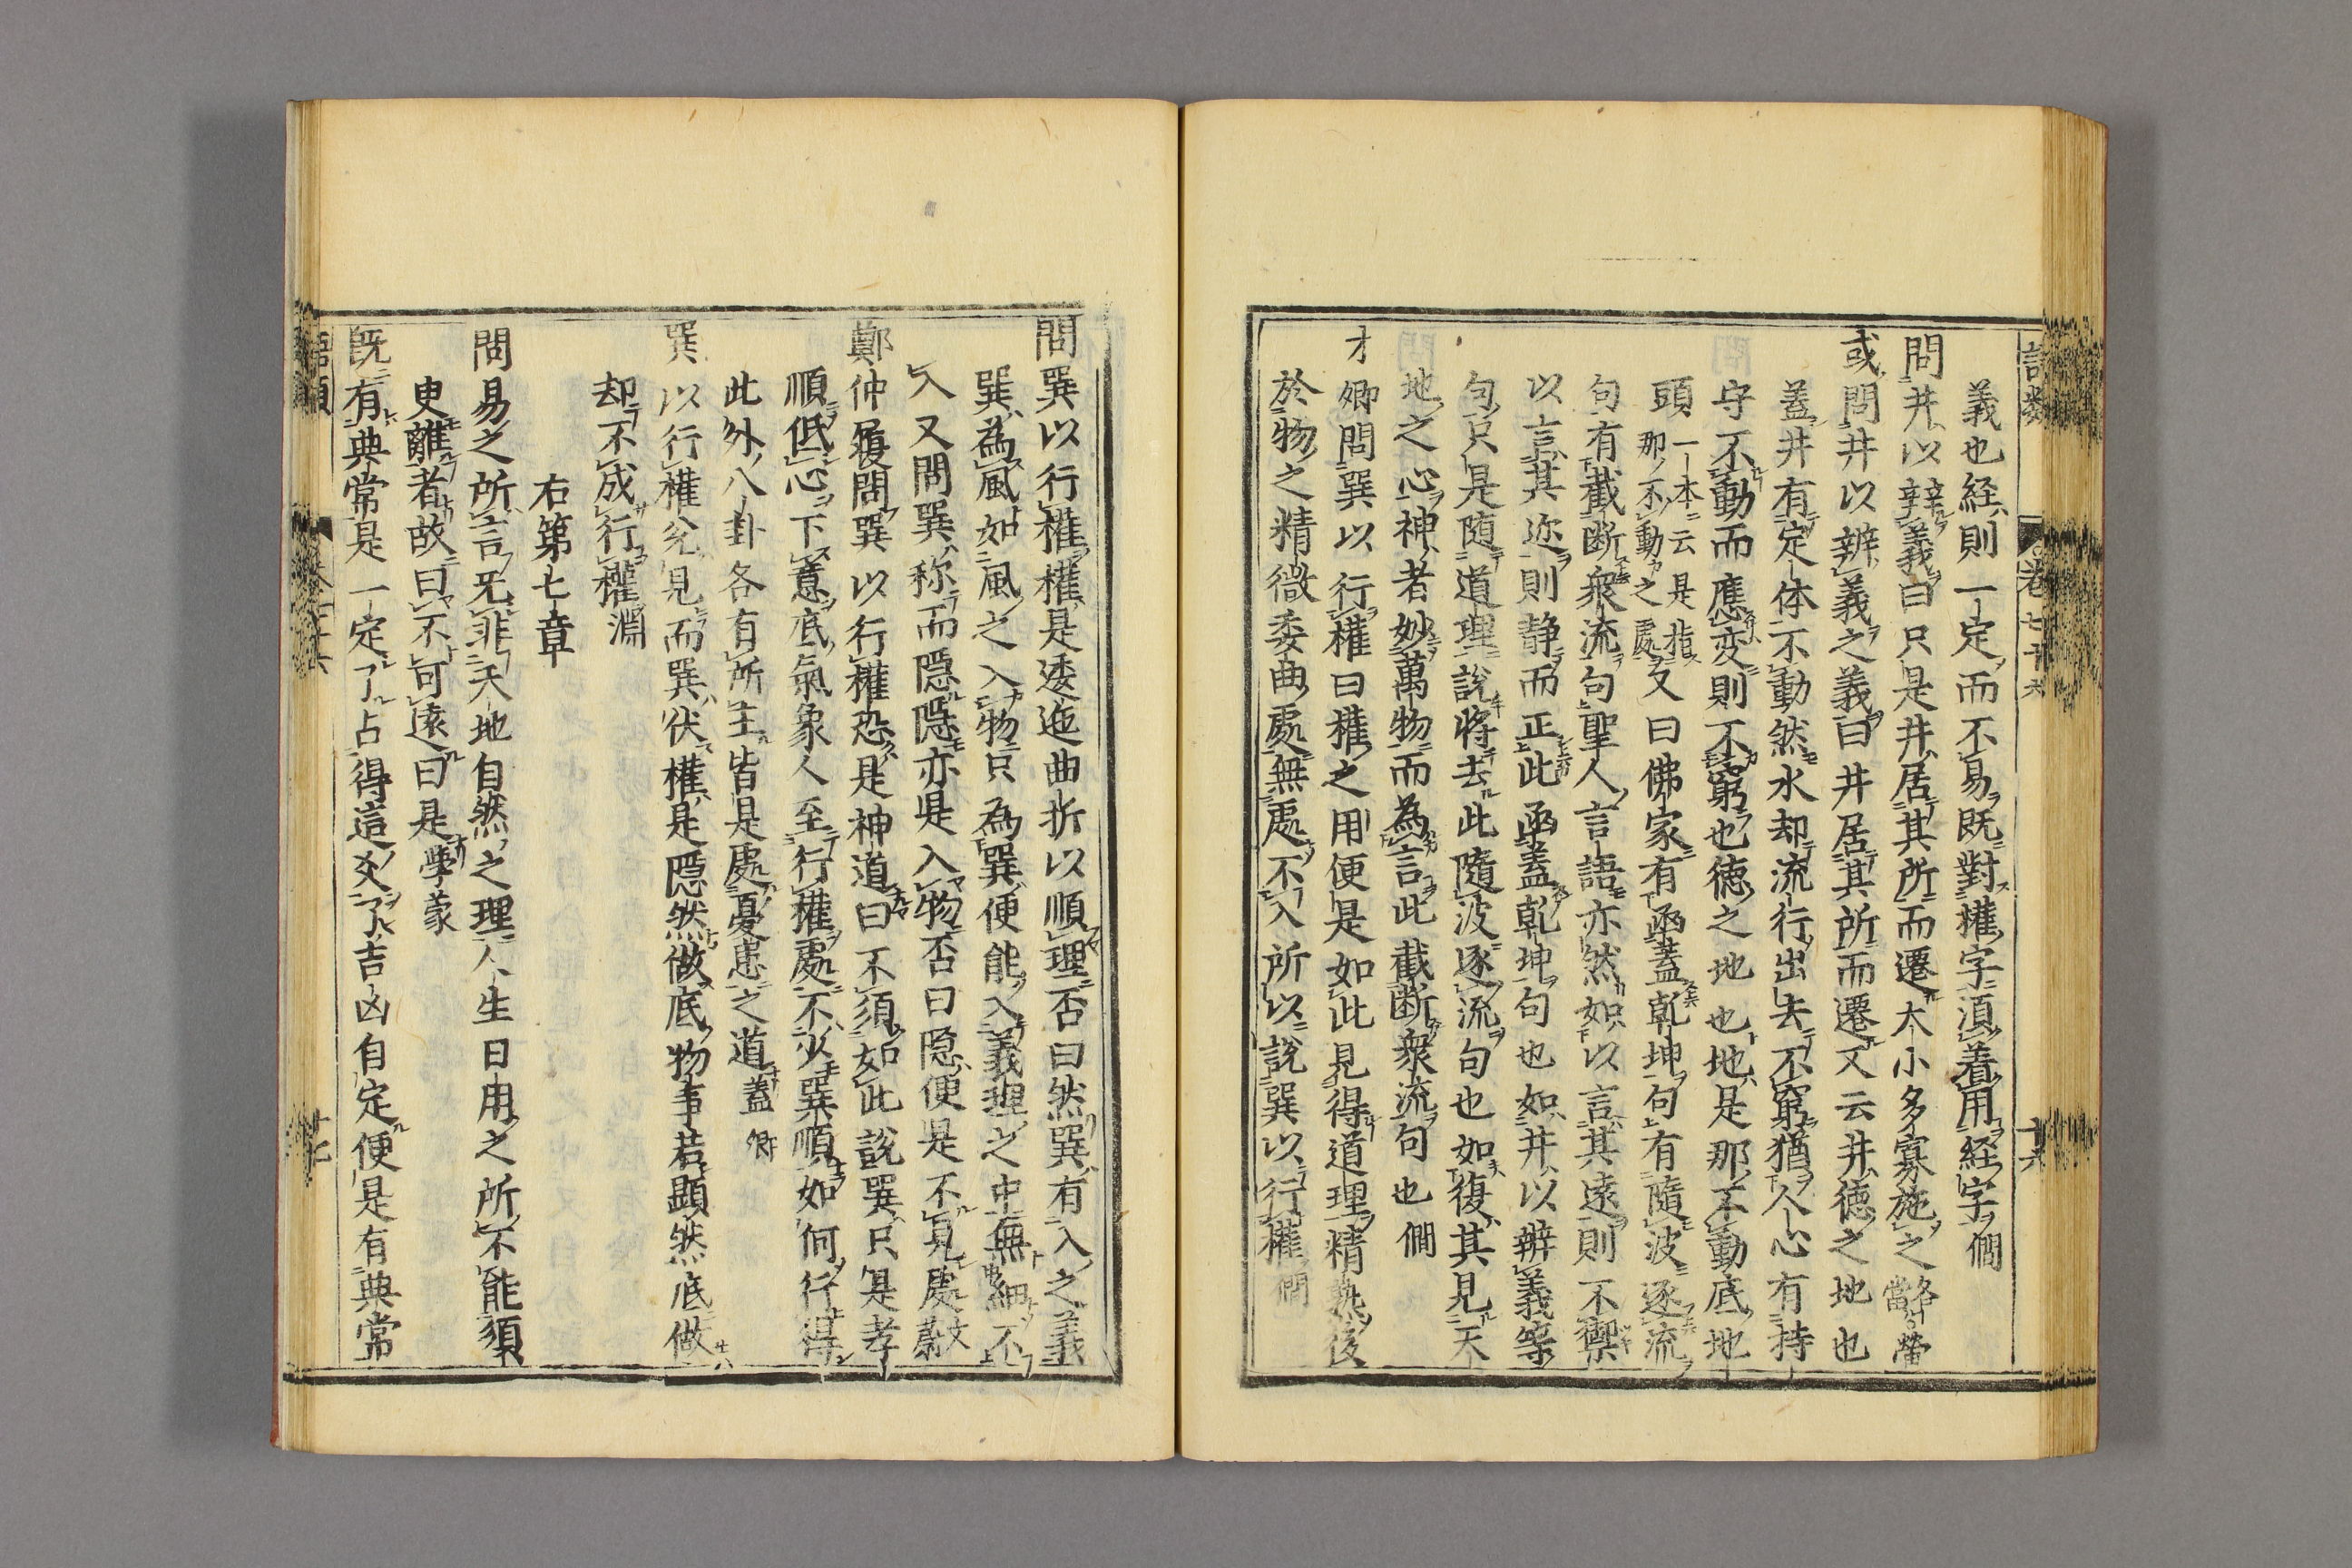 義也経則一定而不易既對權字須着用経字僩
問井以辨義曰只是井居其所而遷大小多寡施之各當㽦
或問井以辨義之義曰井居其所而遷又云井徳之地也
蓋井有定体不動然水却流行出去不窮猶人心有持
守不動而應変則不窮也徳之地也地是那不動底地
頭一本云是指那不動之處又曰佛家有函蓋乾坤句有隨波逐流
句有截断衆流句聖人言語亦然如以言其遠則不禦
以言其迩則静而正此函蓋乾坤句也如井以辨義等
句只是随道理說將去此隨波逐流句也如復其見天
地之心神者妙萬物而為言此截断衆流句也僩
才卿問巽以行權曰権之用便是如此見得道理精熟後
於物之精微委曲處無處不入所以說巽以行權僩
問巽以行權權是逶迤曲折以順理否曰然巽有入之義
巽為風如風之入物只為巽便能入義理之中無細不
入又問巽称而隠隠亦是入物否曰隠便是不見處文蔚
鄭仲履問巽以行權恐是神道曰不須如此說巽只是孝
順低心下意底氣象人至行權處不少巽順如何行得
此外八卦各有所主皆是處憂患之道蓋卿
巽以行權兊見而巽伏權是隠然做底物事若顕然底做
却不成行權淵
右第七章
問易之所言无非天地自然之理人生日用之所不能須
臾離者故曰不可遠曰是學蒙
既有典常是一定了占得這爻了吉凶自定便是有典常